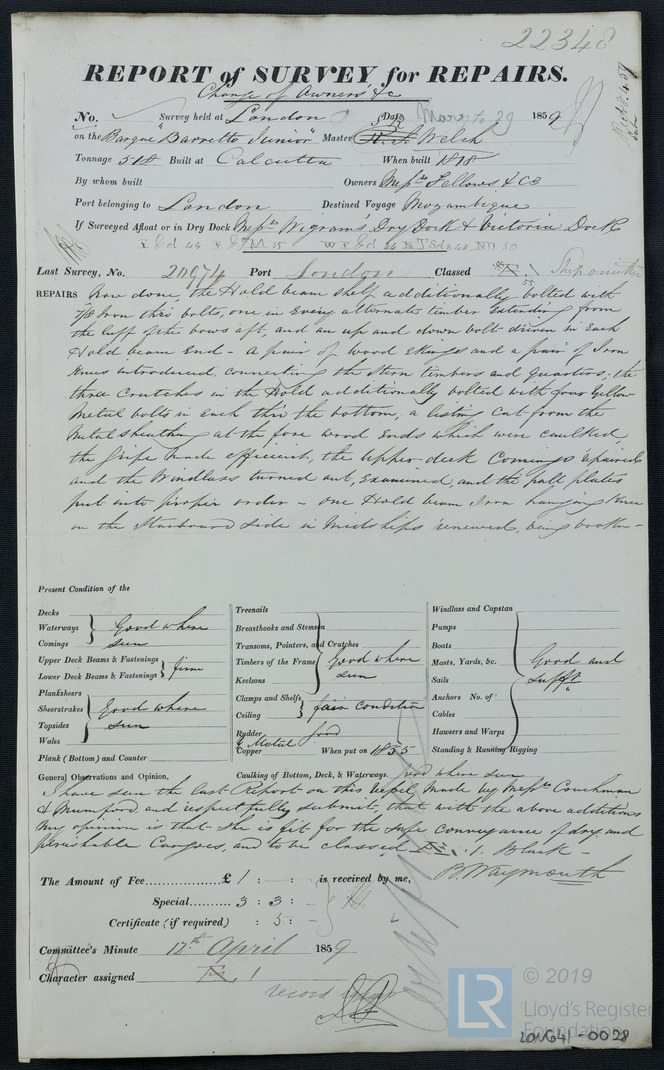 22348
REPORT of SURVEY for REPAIRS.
Change of Owners &c
No. Survey held at London Date March 29 1859
on the Barque "Barretto Junior" Master Welch
Tonnage 518 Built at Calcutta When built 1818
By whom built Owners Messrs Fellows & Co
Port belonging to London Destined Voyage Mozambique
If Surveyed Afloat or in Dry Dock Messrs Wigram's Dry Dock & Victoria Dock
Last Survey, No. 20974 Port London Classed
REPAIRS Now done, the Hold beam shelf additionally bolted with
7/8 Iron thro' bolts, one in Every alternate timber Extending from
the luff of the bows aft, and an up and down bolt driven in Each
Hold beam End - A pair of wood Ekings and a pair of Iron
Knees introduced, connecting the Stern timbers and quarters; the
three Crutches in the Hold additionally bolted with four Yellow
Metal bolts in Each thro' the bottom, a lasting Cut from the
Metal sheathing at the fore wood Ends which were caulked,
the Gripe made efficient, the Upper deck Comings repaired
and the Windlass turned out, Examined, and the pall plates
put into proper order - One Hold beam Iron hanging Knee
on the Starboard Side in Midships renewed, being broken -
Present Condition of the
Decks
Waterways Good where
Comings seen
Upper Deck Beams & Fastenings
Lower Deck Beams & Fastenings firm
Planksheers
Sheerstrakes Good where
Topsides seen
Wales
Plank (Bottom) and Counter
Treenails
Breasthooks and Stemson
Transoms, Pointers, and Crutches
Timbers of the Frame Good where
Keelsons seen
Clamps and Shelfs
Ceiling fair Condition
Rudder good
Y Metal
Copper When put on 1855
Windlass and Capstan
Pumps
Boats
Masts, Yards, &c. Good and
Sails sufft
Anchors No. of
Cables
Hawsers and Warps
Standing & Running Rigging
General Observations and Opinion, Caulking of Bottom, Deck, & Waterways. good where seen
I have seen the last Report on this vessel made by Messrs Couchman
& Mumford and respectfully submit, that with the above additions
My opinion is that She is fit for the safe conveyance of dry and
perishable Cargoes, and to be classed
B. Waymouth
The Amount of Fee £ 1 : - : - is received by me,
Special 3 : 3 : -
Certificate (if required) : 5 : -
Committee's Minute 12th April 1859
Character assigned
LR © 2019
Lloyd's Register
Foundation
LON641-0028